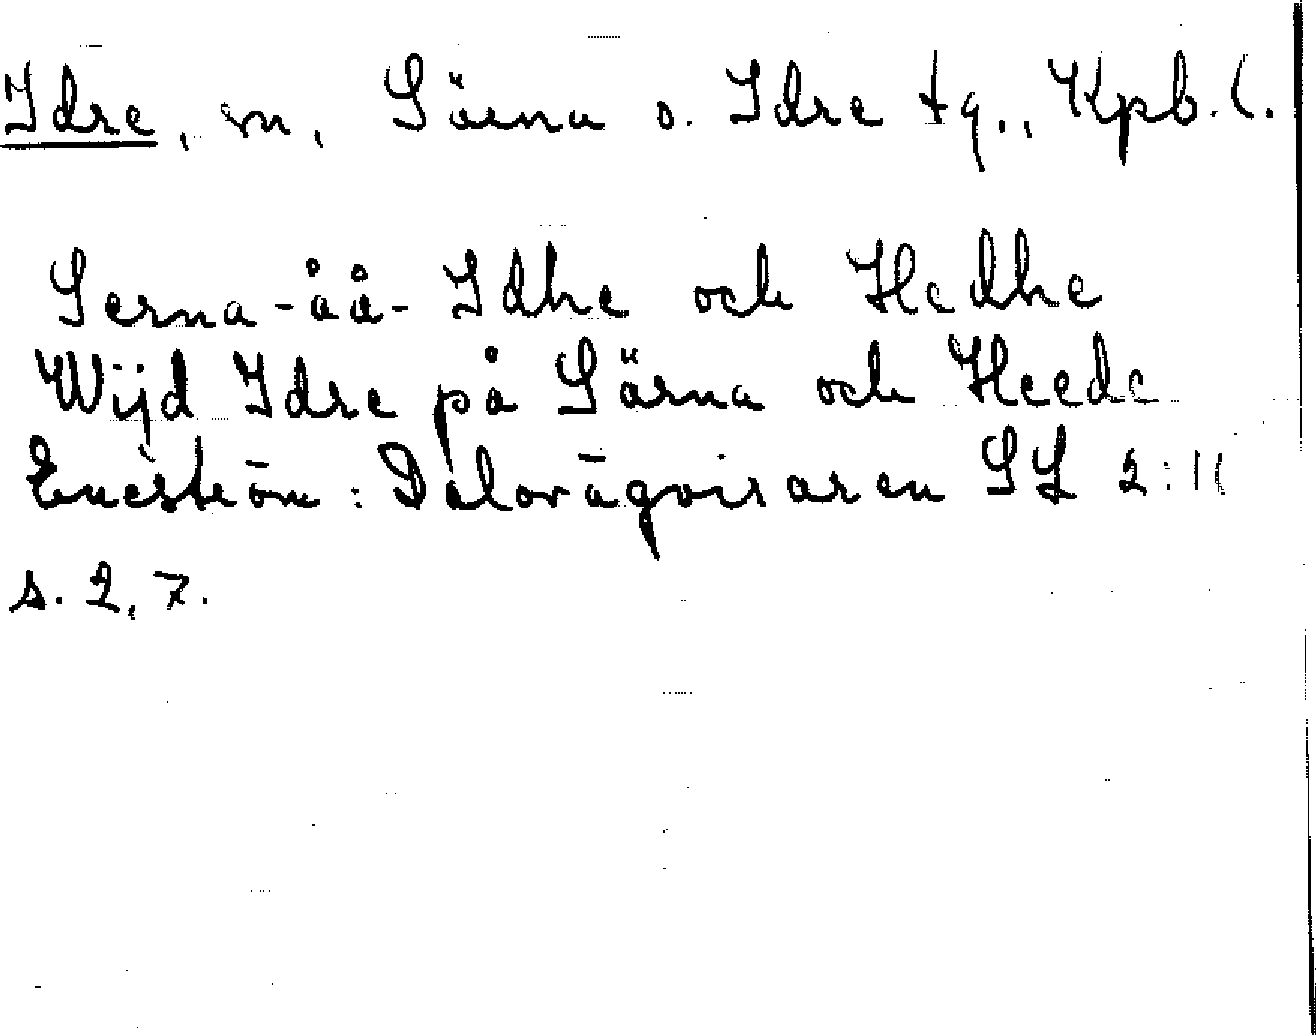 Idre, sn, Särna o. Idre tg., Kpb. l.
Serna-åå-Idhe och Hedhe
Wijd Idre på Särna och Heede
Eneström: Dalavägvisaren SL 2:11
s. 2, 7.